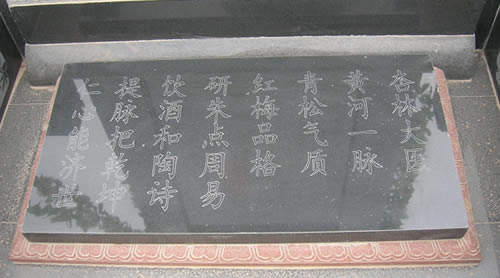 杏林大医
黄河一脉
青松气质
红梅品格
研朱点周易
饮酒和陶诗
提脉把乾坤
仁心能济世